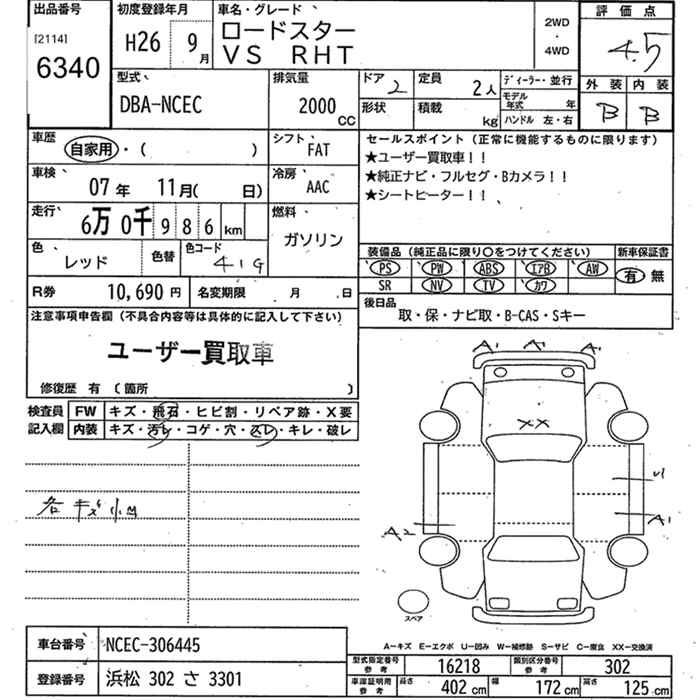 出品番号 初度登録年月 車名・グレード 評価点
[2114]
6340
H26 9月
ロードスター
VS RHT
2WD
・
4WD
4.5
外装 内装
B B
型式 排気量 ドア 定員 ディーラー・並行
DBA-NCEC 2000CC 2 2人
形状 積載 kg
モデル年式 年
ハンドル 左・右
車歴 自家用・( )
シフト FAT
車検 07年 11月( 日)
冷房 AAC
走行 6万0千986km
燃料 ガソリン
色 レッド 色替 色コード 41G
R券 10,690円 名変期限 月 日
セールスポイント(正常に機能するものに限ります)
★ユーザー買取車!!
★純正ナビ・フルセグ・Bカメラ!!
★シートヒーター!!
装備品(純正品に限り○をつけてください) 新車保証書
PS PW ABS エアB AW 有 無
SR NV TV カワ
後日品
取・保・ナビ取・B-CAS・Sキー
注意事項申告欄(不具合内容等は具体的に記入して下さい)
ユーザー買取車
修復歴 有 〔箇所 〕
検査員 FW キズ・飛石・ヒビ割・リペア跡・X要
記入欄 内装 キズ・汚レ・コゲ・穴・スレ・キレ・破レ
各キズ小凹
A1 A1 A1
XX
U
A1
A2
スペア
A-キズ E-エクボ U-凹み W-補修跡 S-サビ C-腐食 XX-交換済
車台番号 NCEC-306445
登録番号 浜松 302 さ 3301
型式指定番号 参考 16218 類別区分番号 参考 302
車庫証明用 参考 長さ 402cm 幅 172cm 高さ 125cm